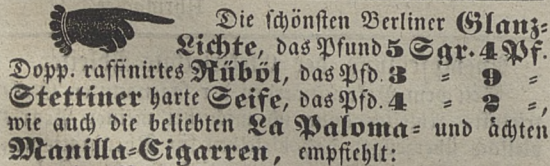 Die schönsten Berliner Glanz-
Lichte, das Pfund 5 Sgr. 4 Pf.
Dopp. raffinirtes Rüböl, das Pfd. 3 = 9 =
Stettiner harte Seife, das Pfd. 4 = 2 =,
wie auch die beliebten La Paloma- und ächten
Manilla-Cigarren, empfiehlt: